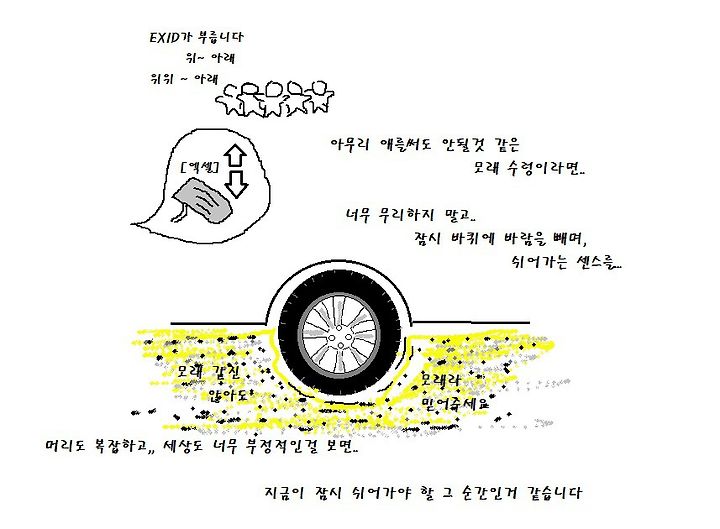 EXID가 부릅니다
위~ 아래
위위 ~ 아래
[엑셀]
아무리 애를써도 안될것 같은
모래 수렁이라면..
너무 무리하지 말고..
잠시 바퀴에 바람을 빼며,
쉬어가는 센스를...
모래 같진
않아도
모래라
믿어쥬세요
머리도 복잡하고,, 세상도 너무 부정적인걸 보면..
지금이 잠시 쉬어가야 할 그 순간인거 같습니다